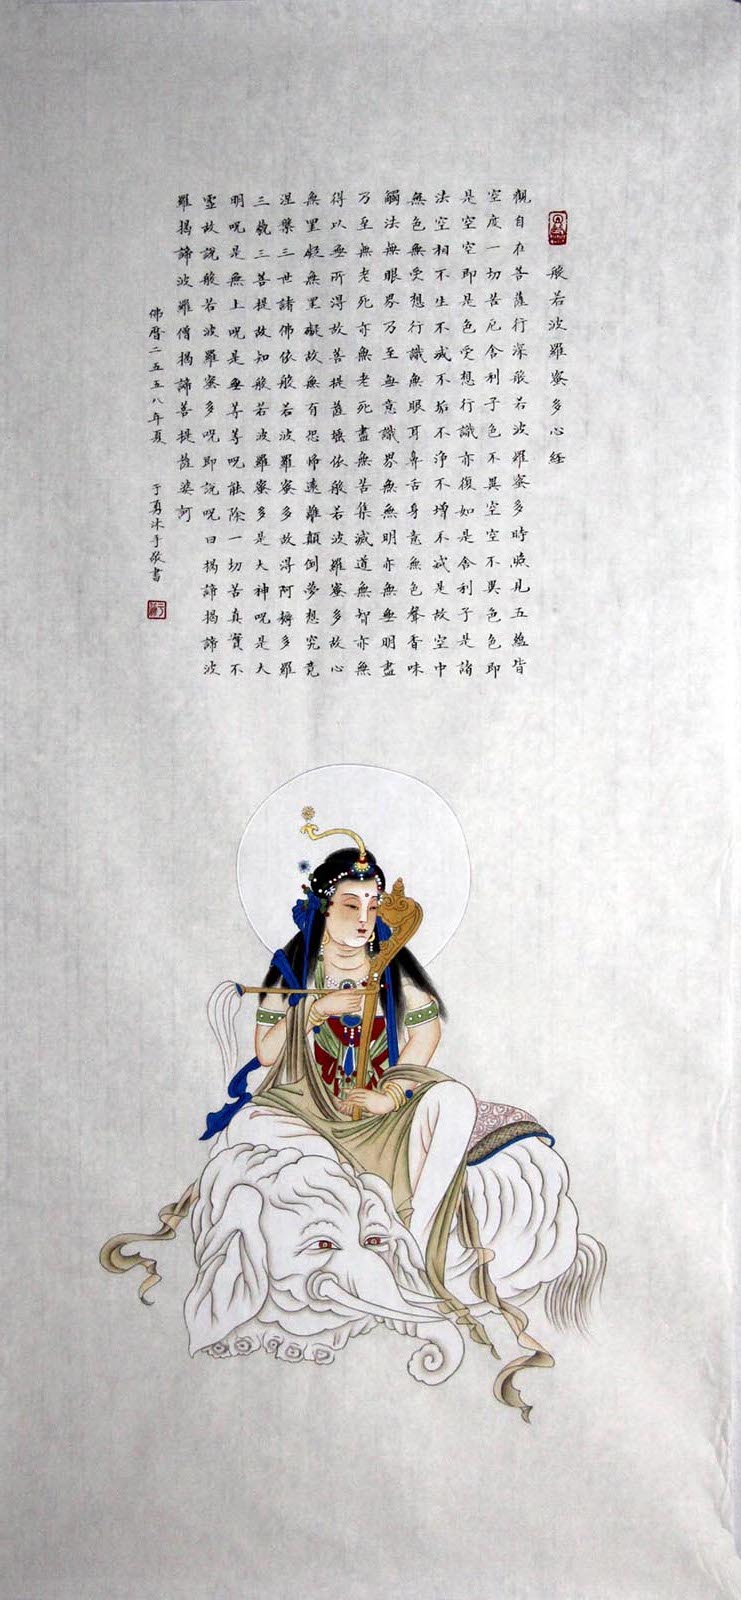 般若波羅蜜多心経
觀自在菩薩行深般若波羅蜜多時照見五蘊皆
空度一切苦厄舍利子色不異空空不異色色即
是空空即是色受想行識亦復如是舍利子是諸
法空相不生不滅不垢不淨不增不減是故空中
無色無受想行識無眼耳鼻舌身意無色聲香味
觸法無眼界乃至無意識界無無明亦無無明盡
乃至無老死亦無老死盡無苦集滅道無智亦無
得以無所得故菩提薩埵依般若波羅蜜多故心
無罣礙無罣礙故無有恐怖遠離顛倒夢想究竟
涅槃三世諸佛依般若波羅蜜多故得阿耨多羅
三藐三菩提故知般若波羅蜜多是大神呪是大
明呪是無上呪是無等等呪能除一切苦真實不
虛故說般若波羅蜜多呪即說呪曰揭諦揭諦波
羅揭諦波羅僧揭諦菩提薩婆訶
佛曆二五五八年夏 于勇沐手敬書